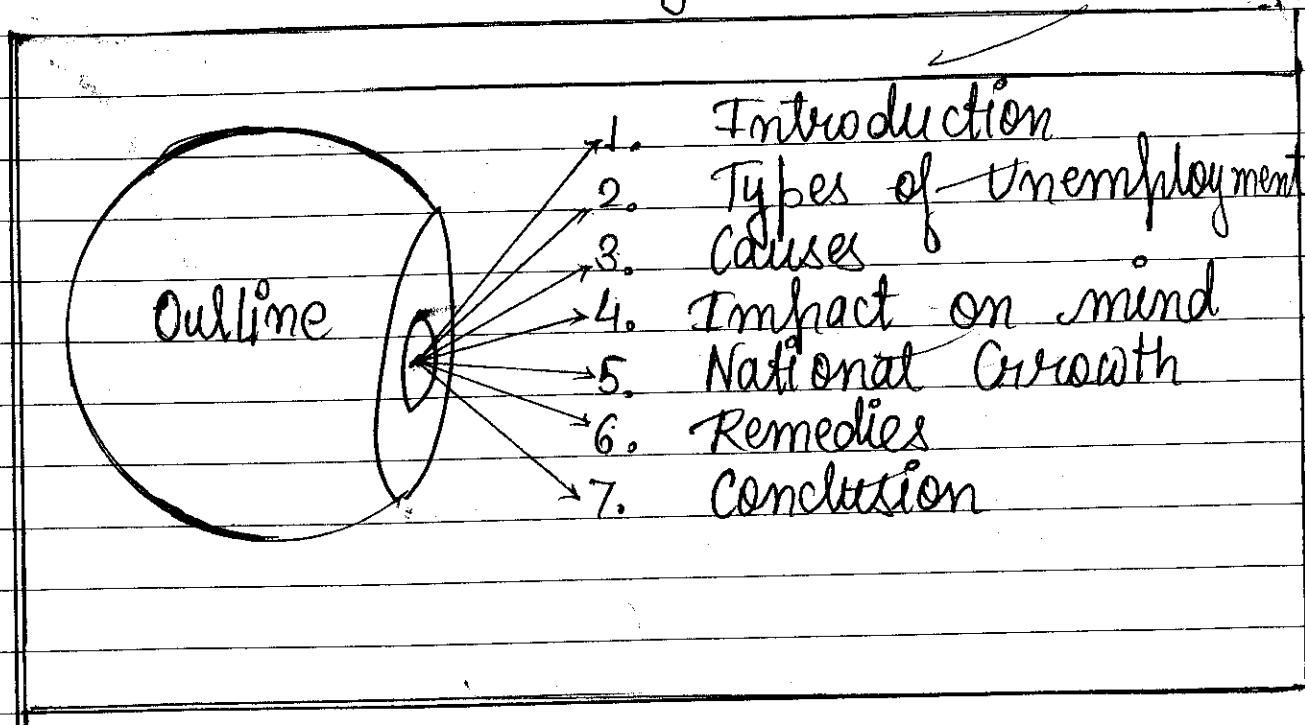 Outline
1. Introduction
2. Types of Unemployment
3. Causes
4. Impact on mind
5. National Growth
6. Remedies
7. Conclusion